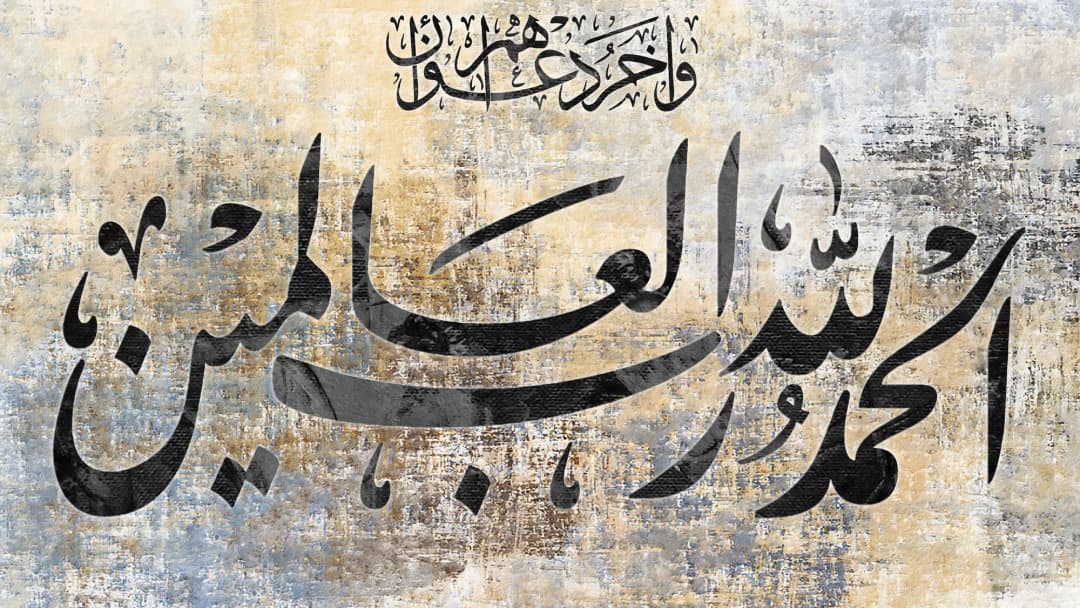 واخر دعواهم ان
الحمد لله رب العالمين